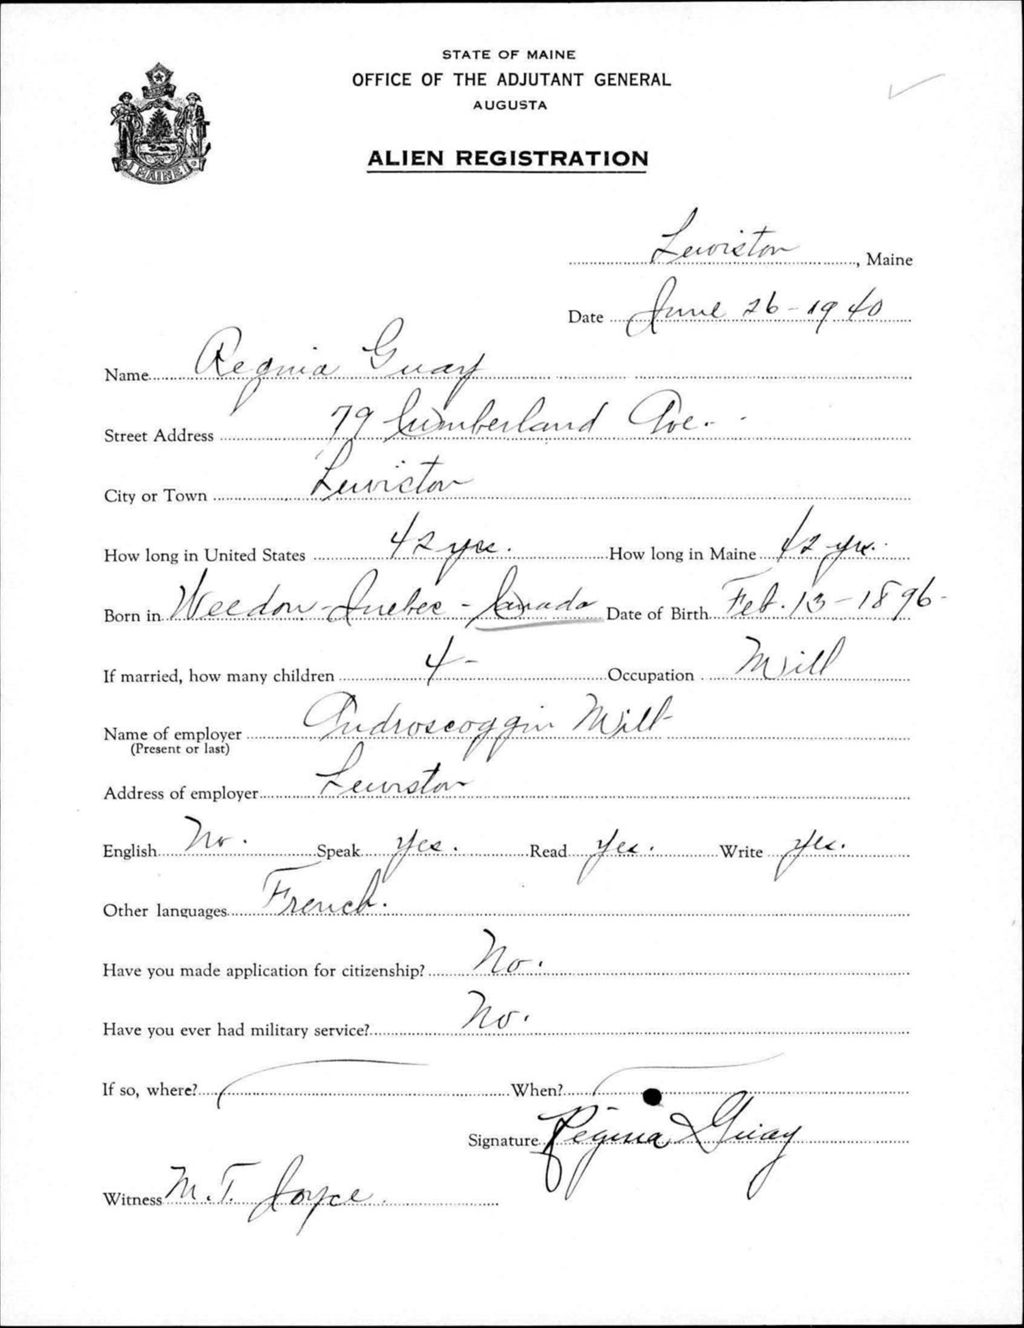 STATE OF MAINE
OFFICE OF THE ADJUTANT GENERAL
AUGUSTA
MAINE
ALIEN REGISTRATION
Lewiston, Maine
Date June 26-1940
Name Regina Guay
Street Address 79 Cumberland Ave.
City or Town Lewiston
How long in United States 42 yrs. How long in Maine 42 yrs.
Born in Weedon-Quebec-Canada Date of Birth Feb. 13-1896-
If married, how many children 4- Occupation Mill
Name of employer Androscoggin Mill-
(Present or last)
Address of employer Lewiston
English No. Speak Yes. Read Yes. Write Yes.
Other languages French.
Have you made application for citizenship? No.
Have you ever had military service? No.
If so, where? When?
Signature Regina Guay
Witness M.T. Joyce